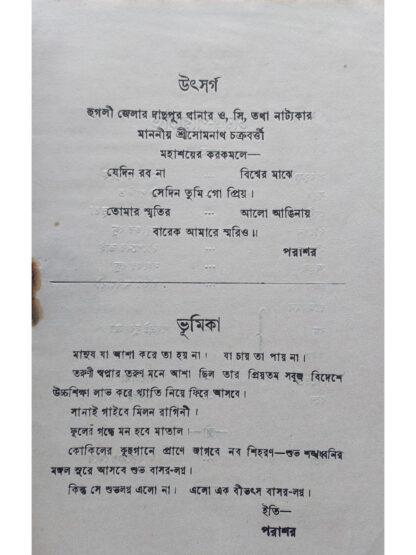 উৎসর্গ
হুগলী জেলার দাদপুর থানার ও, সি, তথা নাট্যকার
মাননীয় শ্রীসোমনাথ চক্রবর্ত্তী
মহাশয়ের করকমলে—
যেদিন রব না বিশ্বের মাঝে
সেদিন তুমি গো প্রিয়।
তোমার স্মৃতির ... আলো আঙিনায়
বারেক আমারে স্মরিও॥
পরাশর
ভূমিকা
মানুষ যা আশা করে তা হয় না। যা চায় তা পায় না।
তরুণী স্বপ্নার তরুণ মনে আশা ছিল তার প্রিয়তম সবুজ বিদেশে
উচ্চশিক্ষা লাভ করে খ্যাতি নিয়ে ফিরে আসবে।
সানাই গাইবে মিলন রাগিনী।
ফুলের গন্ধে মন হবে মাতাল।
কোকিলের কুহুগানে প্রাণে জাগবে নব শিহরণ—শুভ শঙ্খধ্বনির
মঙ্গল সুরে আসবে শুভ বাসর-লগ্ন।
কিন্তু সে শুভলগ্ন এলো না। এলো এক বীভৎস বাসর-লগ্ন।
ইতি—
পরাশর